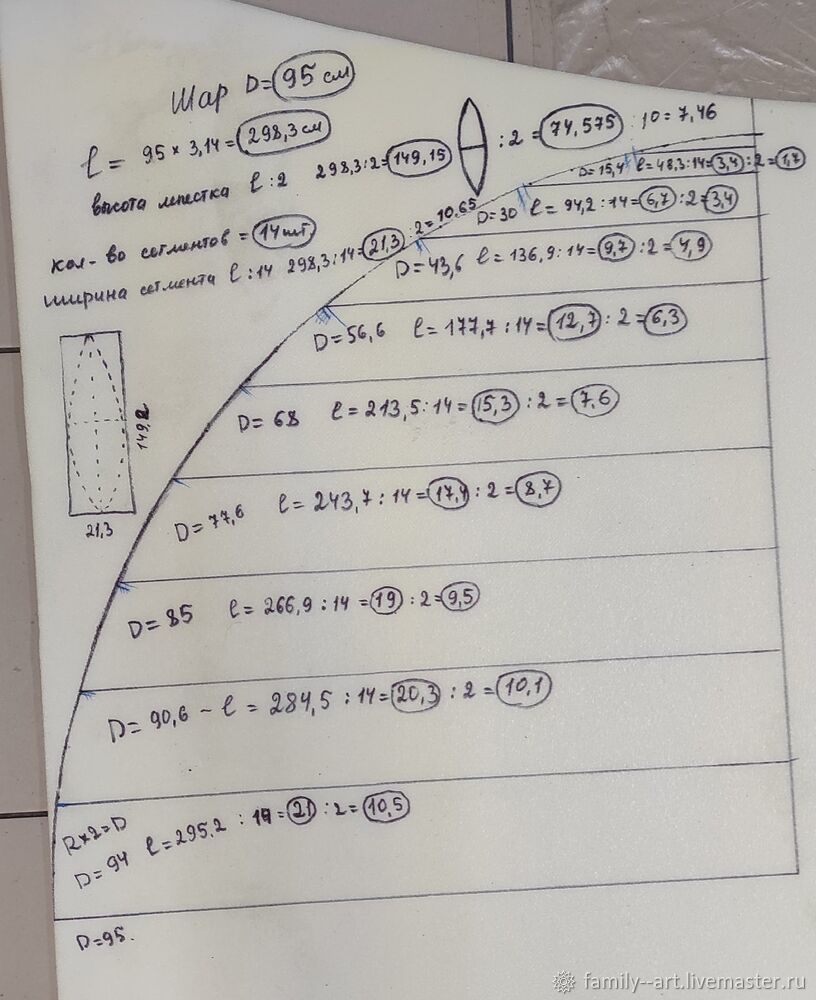 Шар D=95 см
l= 95 × 3,14= 298,3 см
: 2 = 74,575 : 10 = 7,46
высота лепестка l : 2 298,3:2=149,15
кол-во сегментов = 14 шт
ширина сегмента l : 14 298,3:14= 21,3 : 2= 10.65
D= 15,4 l= 48,3:14= 3,4 : 2= 1,7
D=30 l= 94,2 : 14= 6,7 : 2= 3,4
D=43,6 l= 136,9:14= 9,7 : 2= 4,9
D=56,6 l= 177,7 : 14= 12,7 : 2= 6,3
149,2
21,3
D=68 l= 213,5:14= 15,3 : 2= 7,6
D=77,6 l= 243,7 : 14= 17,4 : 2= 8,7
D=85 l= 266,9 : 14 = 19 : 2= 9,5
D= 90,6 – l = 284,5 : 14= 20,3 : 2 = 10,1
R×2=D
D=94 l=295.2 : 14= 21 : 2= 10,5
D=95.
family--art.livemaster.ru